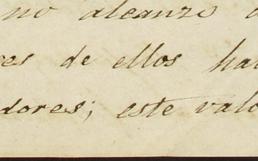 no alcanzo
es de ellos ha
dores; este valo